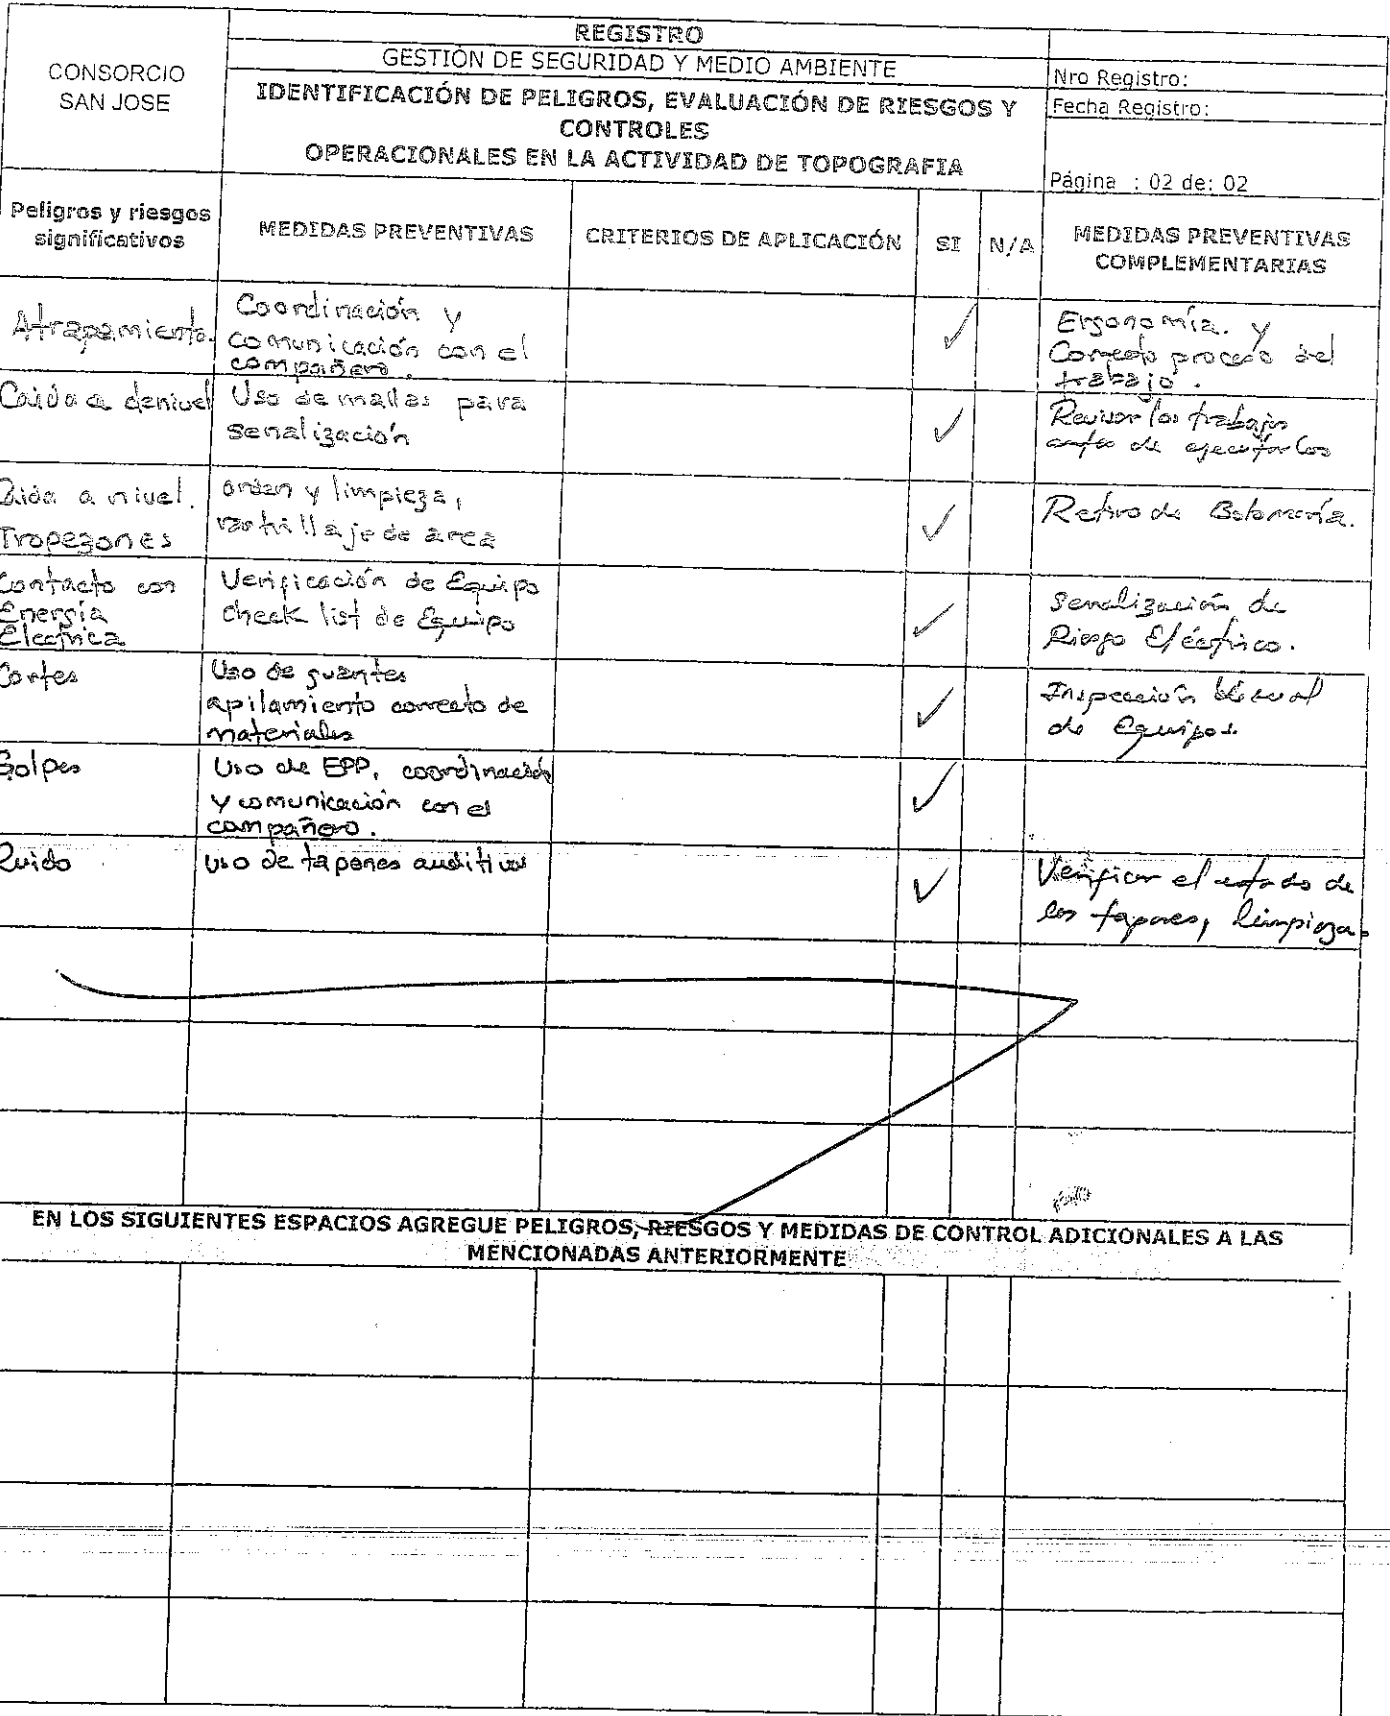 CONSORCIO
SAN JOSE
REGISTRO
GESTIÓN DE SEGURIDAD Y MEDIO AMBIENTE
IDENTIFICACIÓN DE PELIGROS, EVALUACIÓN DE RIESGOS Y
CONTROLES
OPERACIONALES EN LA ACTIVIDAD DE TOPOGRAFIA
Nro Registro:
Fecha Registro:
Página : 02 de: 02
Peligros y riesgos
significativos
MEDIDAS PREVENTIVAS
CRITERIOS DE APLICACIÓN
SI
N/A
MEDIDAS PREVENTIVAS
COMPLEMENTARIAS
Atrapamiento.
Coordinación y
comunicación con el
compañero.
✓
Ergonomía. y
Correcto proceso del
trabajo.
Caida a denivel
Uso de mallas para
senalización
✓
Revisar los trabajos
antes de ejecutarlos
Caida a nivel.
Tropezones
orden y limpieza,
rastrillaje de area
✓
Retiro de
Contacto con
Energía
Electrica
Verificación de Equipo
check list de Equipo
✓
Senalización de
Riesgo Eléctrico.
Cortes
Uso de guantes
apilamiento correcto de
materiales
✓
Inspección visual
de Equipos.
Golpes
Uso de EPP, coordinación
y comunicación con el
compañero.
✓
Ruido
uso de tapones auditivos
✓
Verificar el estado de
los tapones, limpieza.
EN LOS SIGUIENTES ESPACIOS AGREGUE PELIGROS, RIESGOS Y MEDIDAS DE CONTROL ADICIONALES A LAS
MENCIONADAS ANTERIORMENTE